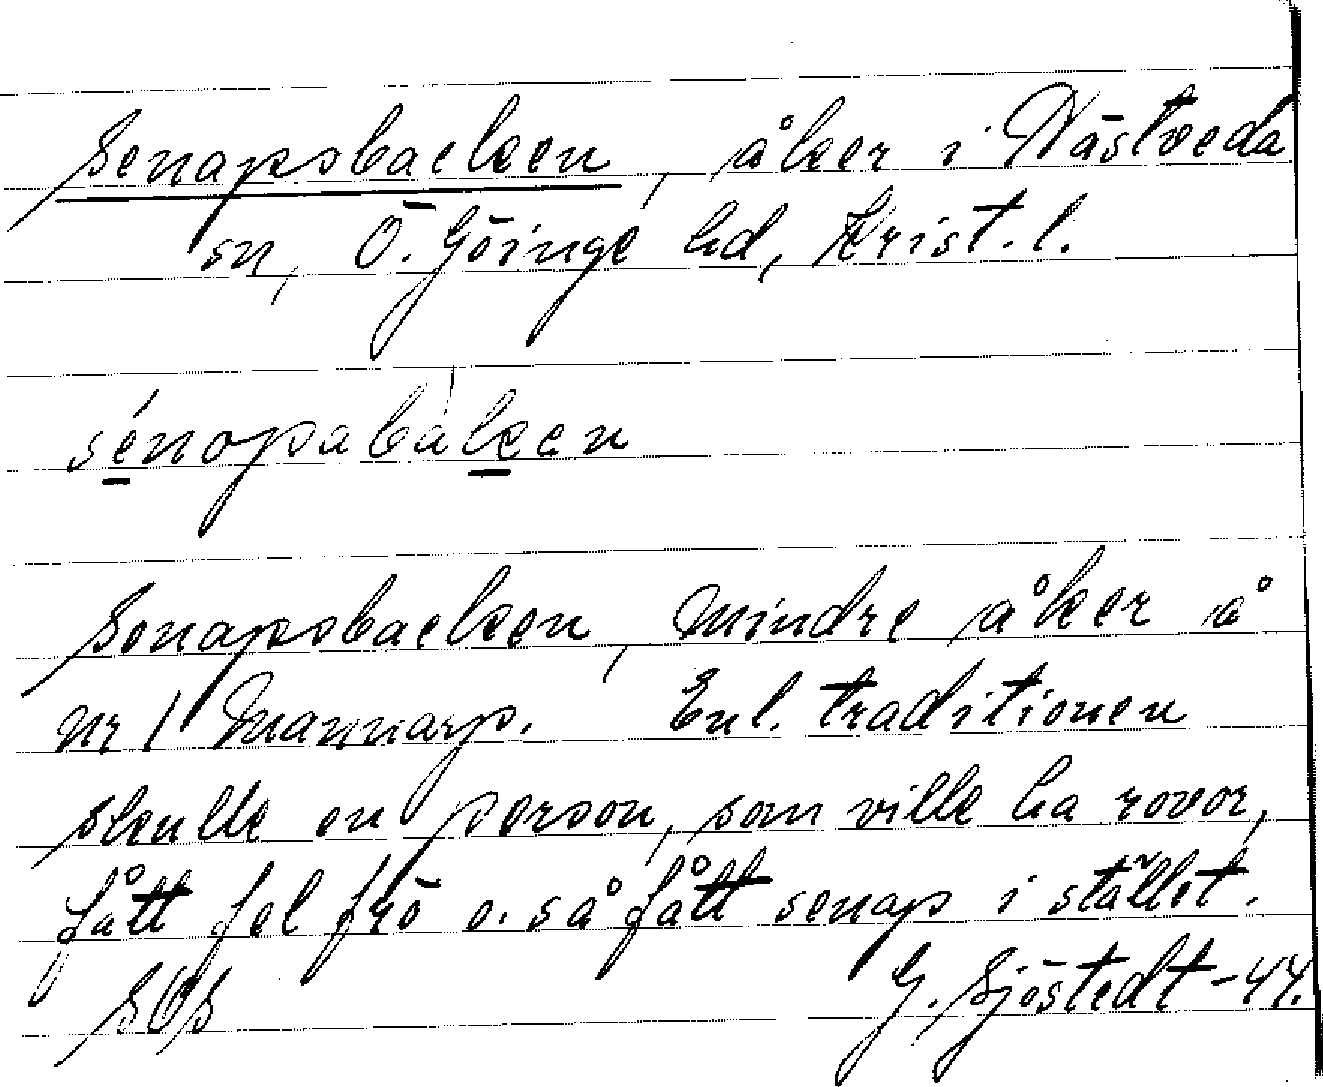 Senapsbacken, åker i Nästveda
sn, Ö. Göinge hd, Krist. l.
sénopsbàken
Senapsbacken, mindre åker å
nr 1 Mannarp. Enl. traditionen
skulle en person, som ville ha rovor,
fått fel frö o. så fått senap i stället.
G. Sjöstedt -44.